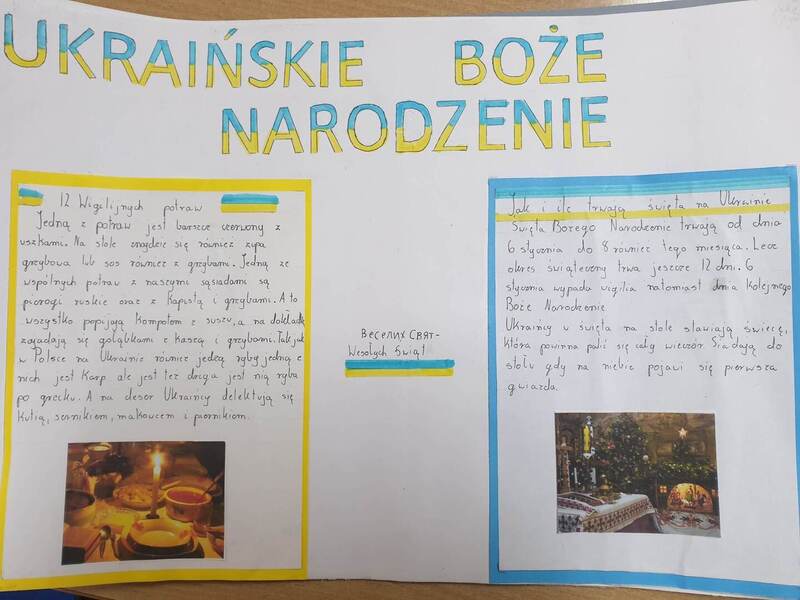 UKRAIŃSKIE BOŻE
NARODZENIE
12 Wigilijnych potraw
Jedną z potraw jest barszcz czerwony z
uszkami. Na stole znajdzie się również zupa
grzybowa lub sos również z grzybami. Jedną ze
wspólnych potraw z naszymi sąsiadami są
pierogi ruskie oraz z kapistą i grzybami. A to
wszystko popijają kompotem z suszu, a na dokładkę
zajadają się gołąbkami z kaszą i grzybami. Tak jak
w Polsce na Ukrainie również jedzą ryby jedną z
nich jest karp ale jest też druga jest nią ryba
po grecku. A na desor Ukraińcy delektują się
kutią, sernikiem, makowcem i piernikiem.
Веселих Свят-
Wesołych Świąt
Jak i ile trwają święta na Ukrainie
Święta Bożego Narodzenie trwają od dnia
6 stycznia do 8 również tego miesiąca. Lecz
okres świąteczny trwa jeszcze 12 dni. 6
stycznia wypada wigilia natomiast dnia kolejnego
Boże Narodzenie
Ukraińcy w święta na stole stawiają świecę,
która powinna palić się cały wieczór. Siadają do
stołu gdy na niebie pojawi się pierwsza
gwiazda.